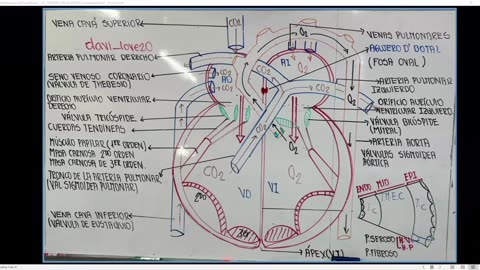 VENA CAVA SUPERIOR
davi_love20
ARTERIA PULMONAR DERECHO
SENO VENOSO CORONARIO
(VÁLVULA DE THEBESIO)
ORIFICIO AURÍCULO VENTRICULAR
DERECHO
VÁLVULA TRICÚSPIDE
CUERDAS TENDINEAS
MÚSCULO PAPILAR (1er ORDEN)
MASA CARNOSA 2do ORDEN
MASA CARNOSA DE 3er ORDEN
TRONCO DE LA ARTERIA PULMONAR
(VAL SIGMOIDEA PULMONAR)
VENA CAVA INFERIOR
(VÁLVULA DE EUSTAQUIO)
CO2
O2
O2
AD
CO2
CO2
CO2
AI
O2
O2
O2
CO2
O2
VD
VI
2do
3er
VENAS PULMONARES
AGUJERO D' BOTAL
(FOSA OVAL)
ARTERIA PULMONAR
IZQUIERDO
ORIFICIO AURÍCULO
VENTRICULAR IZQUIERD.
VÁLVULA BICÚSPIDE
(MITRAL)
ARTERIA AORTA
VÁLVULAS SIGMOIDEA
AORTICA
ENDO
MIO
EPI
M.E.C
T.C
P.SEROSO
H.V
H.P
P.FIBROSO
ÁPEX (VI)